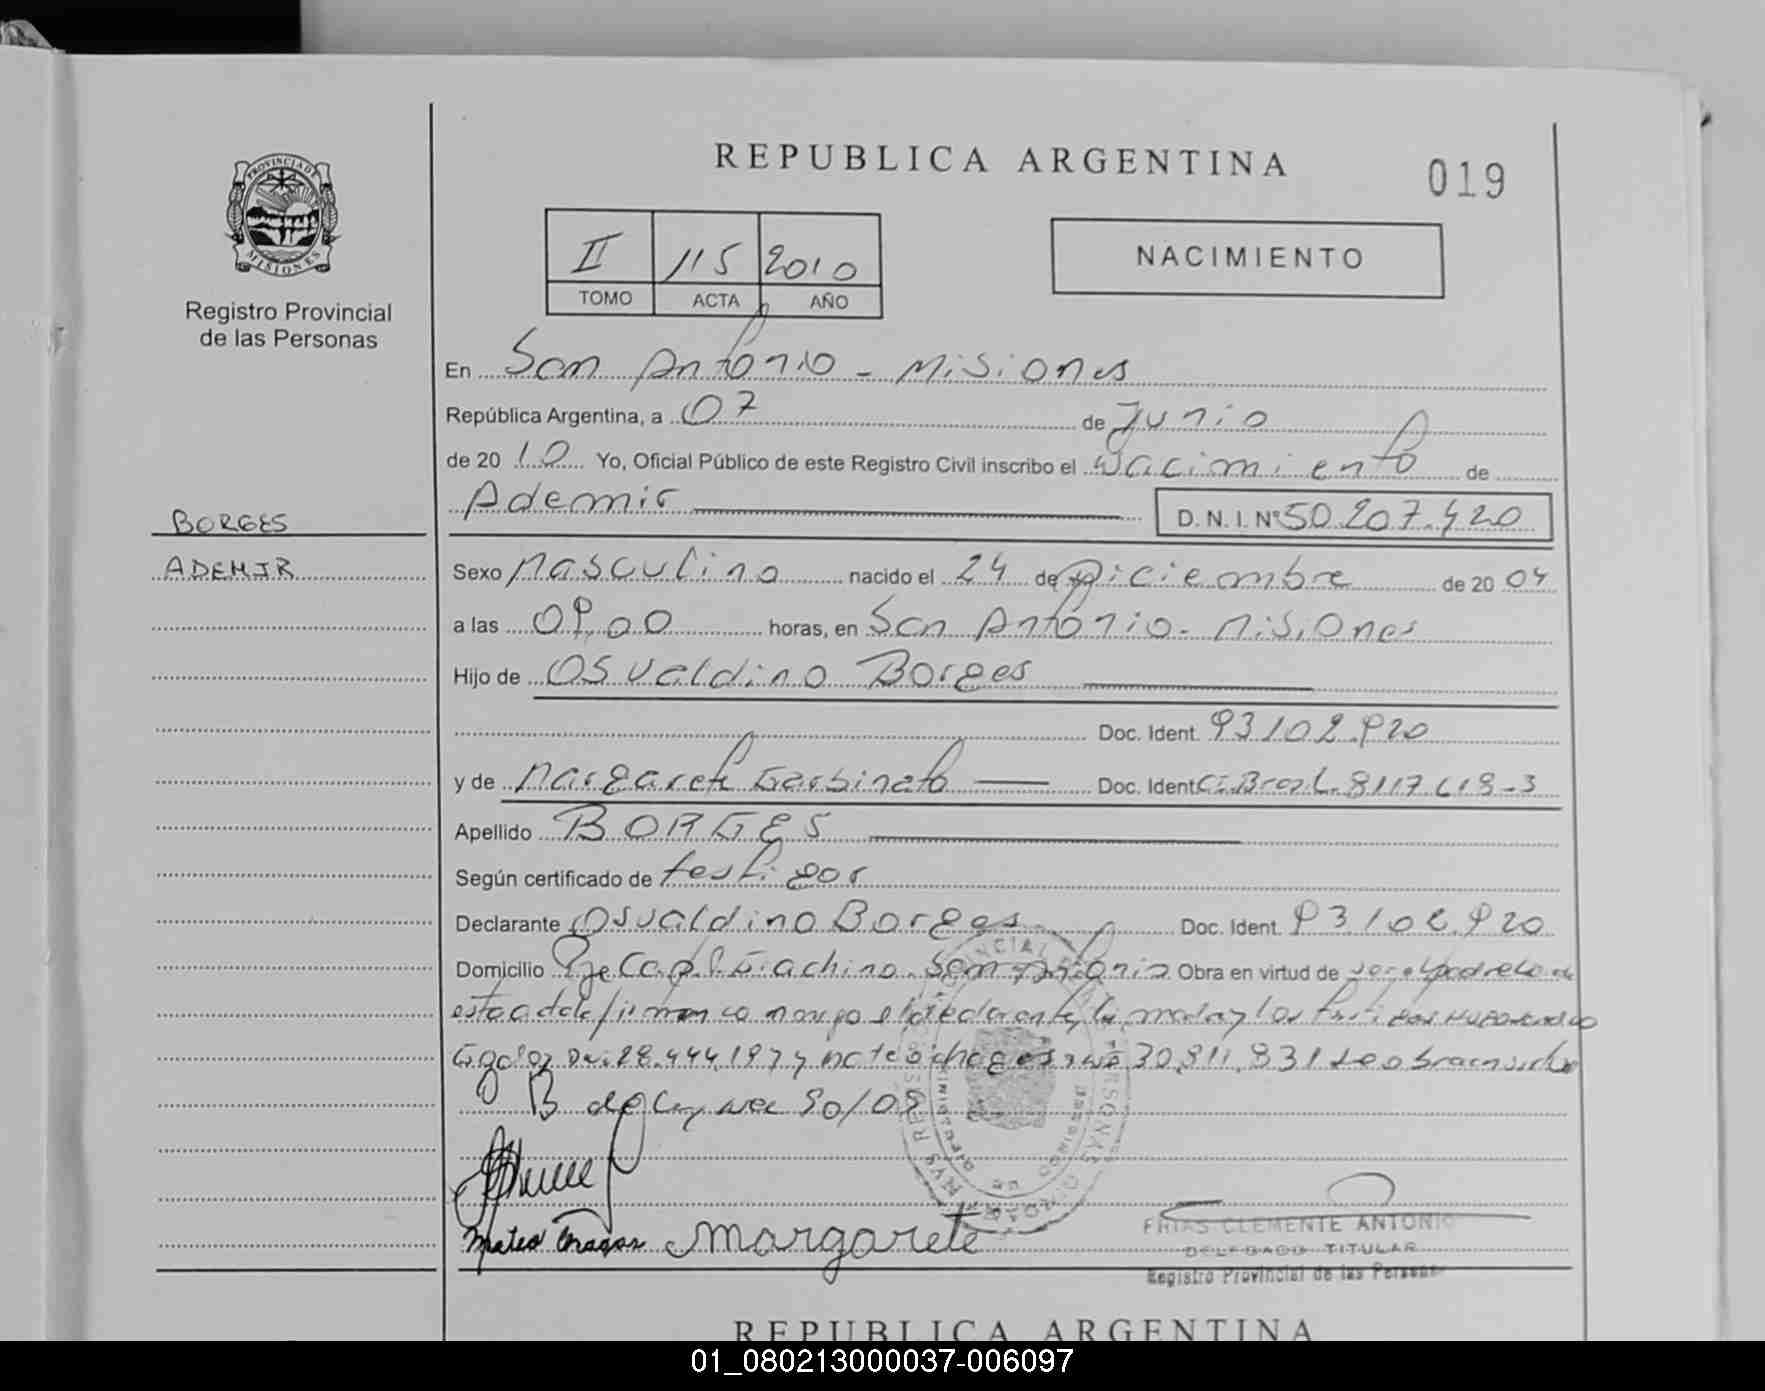 REPUBLICA ARGENTINA
019
PROVINCIA DE MISIONES
Registro Provincial
de las Personas
II 115 2010
TOMO ACTA AÑO
NACIMIENTO
En San Antonio - Misiones
República Argentina, a 07 de Junio
de 2010 Yo, Oficial Público de este Registro Civil inscribo el Nacimiento de
Ademir D.N.I. Nº 50.207.420
BORGES
ADEMIR
Sexo Masculino nacido el 24 de Diciembre de 2004
a las 09,00 horas, en San Antonio - Misiones
Hijo de Osvaldino Borges
Doc. Ident. 93102.920
y de Margarete Garbinato Doc. Ident C.I. Brasil. 8117618-3
Apellido BORGES
Según certificado de testigos
Declarante Osvaldino Borges Doc. Ident. 93.102.920
Domicilio Pje Cap. Giachino. San Antonio Obra en virtud de ser el padre Leida
esta acta la firman conmigo el declarante, la madre y los testigos
DNI. 28.444.197 y Mateo Chagas DNI 30.811.831
B de ley nec 90/09
Mateo Chagas Margarete
FRIAS CLEMENTE ANTONIO
DELEGADO TITULAR
Registro Provincial de las Personas
REPUBLICA ARGENTINA
01_080213000037-006097